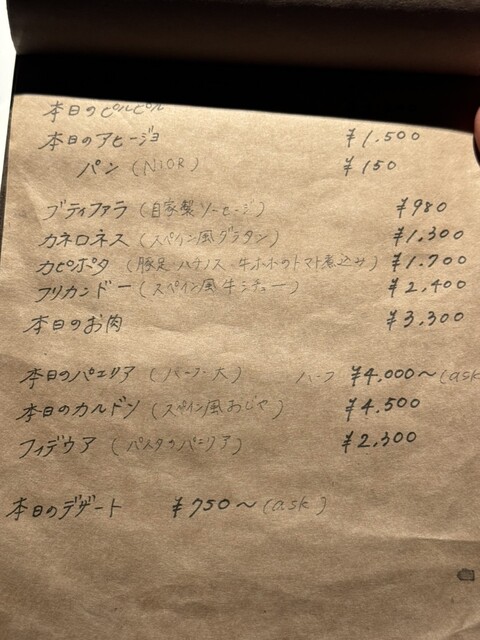 本日のピルピル
本日のアヒージョ ¥1.500
パン (NIOR) ¥150
ブティファラ (自家製ソーセージ) ¥980
カネロネス (スペイン風グラタン) ¥1.300
カピポタ (豚足・ハチノス・牛ホホのトマト煮込み) ¥1.700
フリカンドー (スペイン風牛シチュー) ¥2,400
本日のお肉 ¥3,300
本日のパエリア (ハーフ・大) ハーフ ¥4,000〜 (ask
本日のカルドソ (スペイン風おじや) ¥4.500
フィデウア (パスタのパエリア) ¥2,300
本日のデザート ¥750〜 (ask)